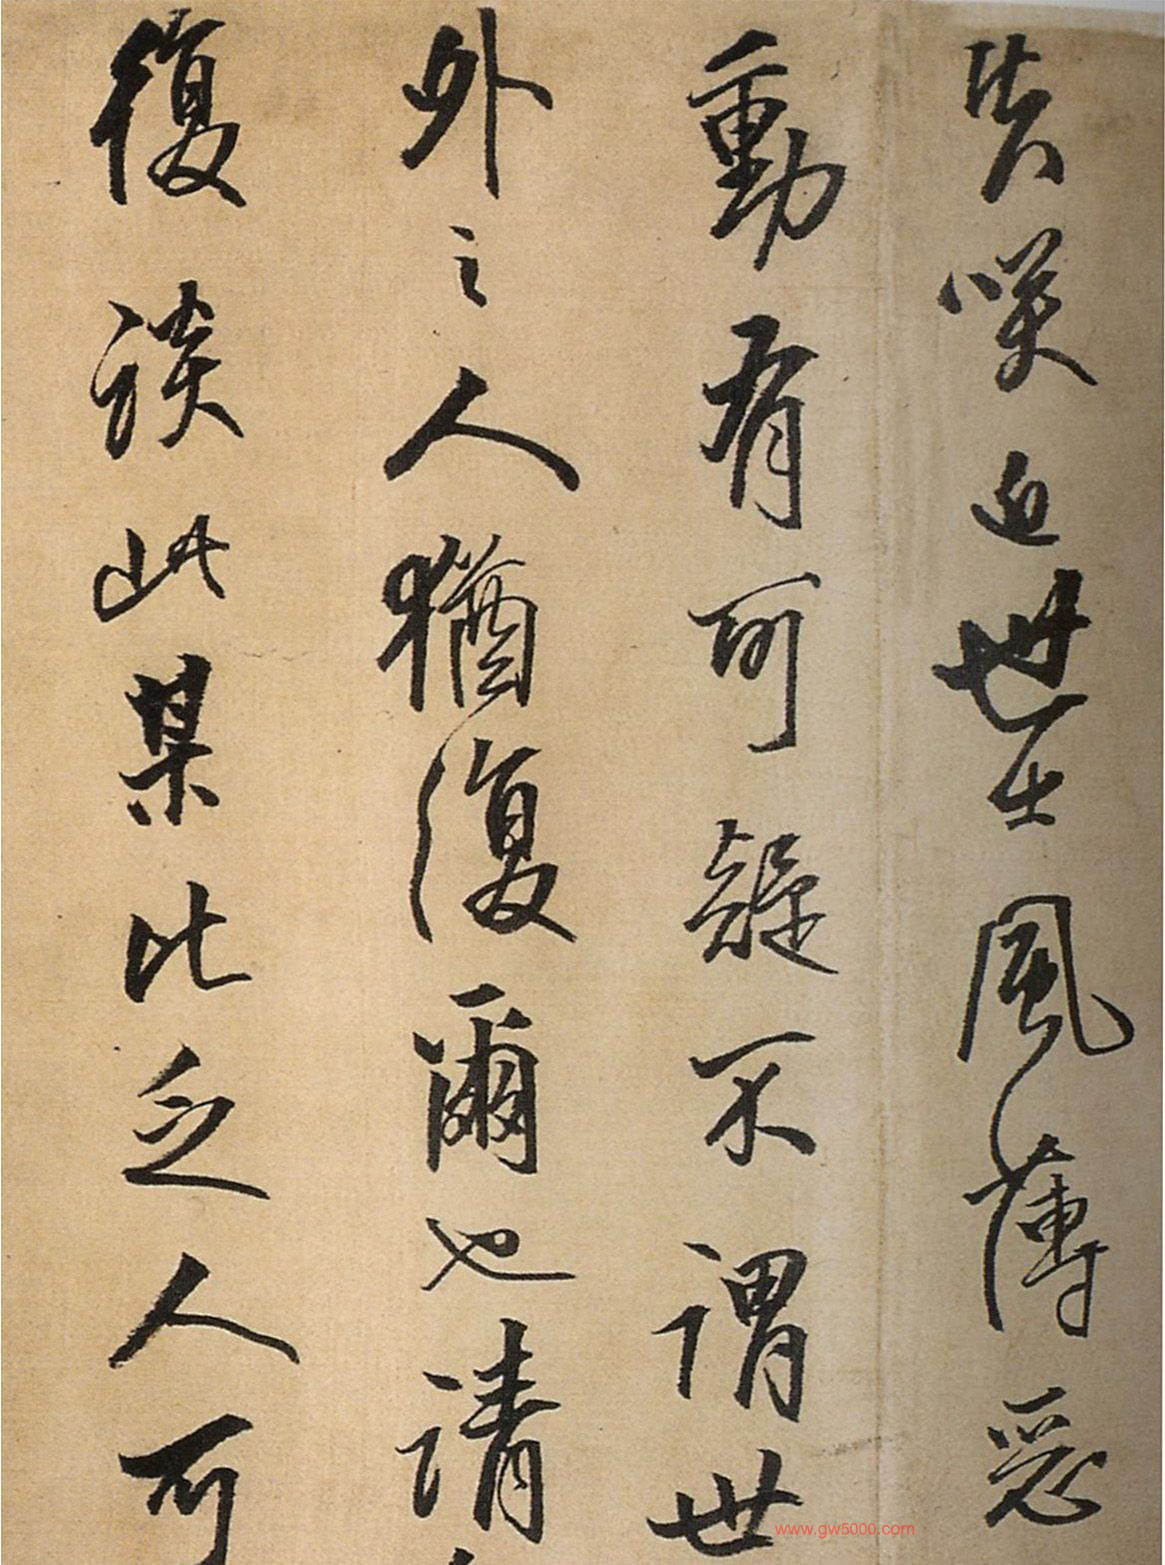 失咲近世士風薄惡
動有可疑不謂世
外之人猶復爾也請
復談此某比乏人可
www.gw5000.com